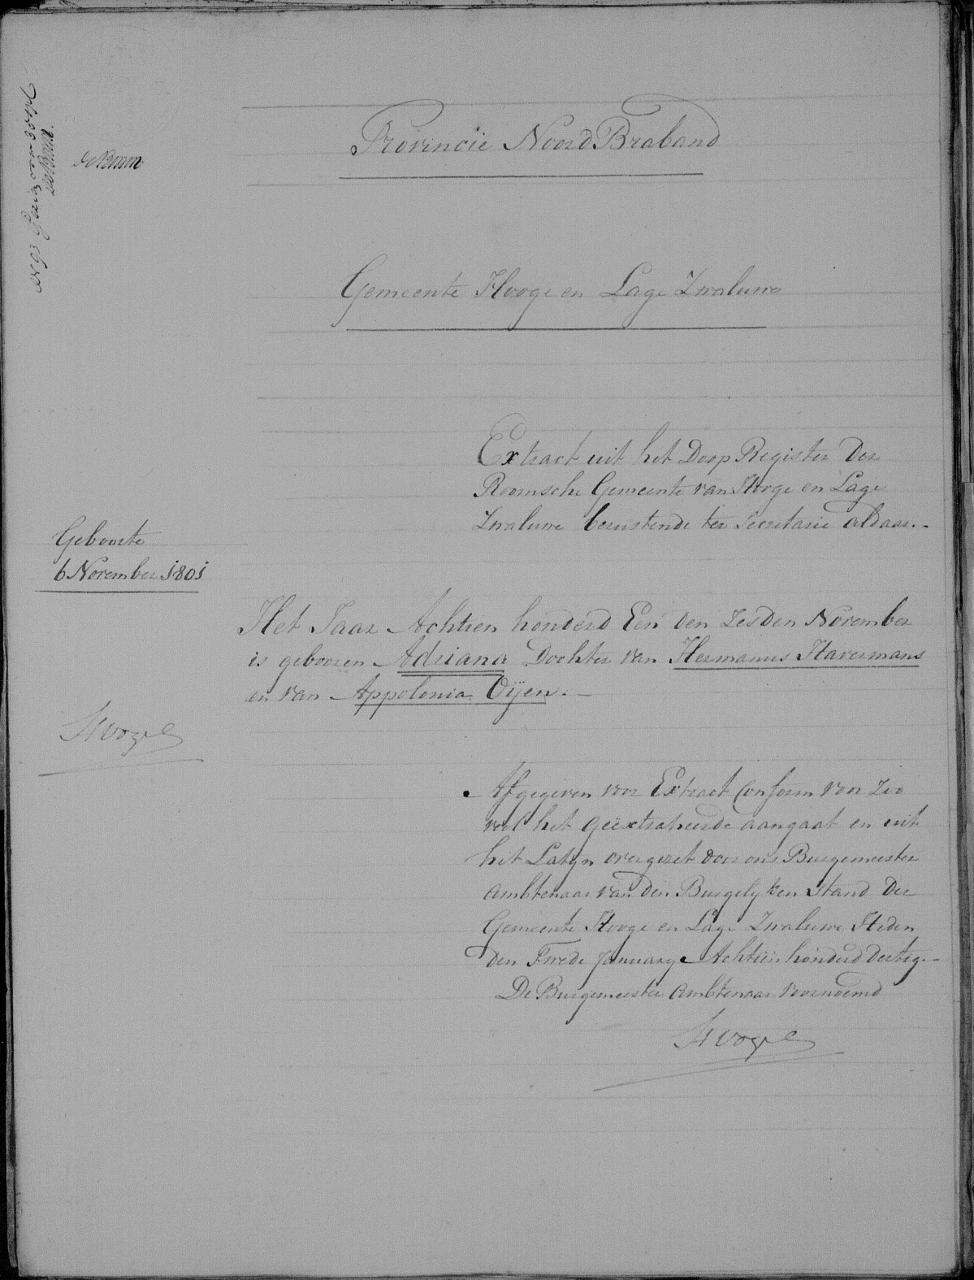 Provincie Noord Braband
Gemeente Hooge en Lage Zwaluwe
Extract uit het Doop Register der
Roomsche Gemeente van Hooge en Lage
Zwaluwe berustende ter Secretarie aldaar.-
Geboorte
6 November 1801
Het Jaar Achtien honderd Een den Zesden November
is geboren Adriana Dochter van Hermanus Havermans
en van Appolonia Oÿen.-
HVogel
Afgegeven voor Extract Conform voor Zoo
veel het geëxtraheerde aangaat en uit
het Latyn overgezet door ons Burgemeester
Ambtenaar van den Burgelyken Stand der
Gemeente Hooge en Lage Zwaluwe Heden
den Twede January Achtien honderd dertig.-
De Burgemeester Ambtenaar voornoemd
HVogel